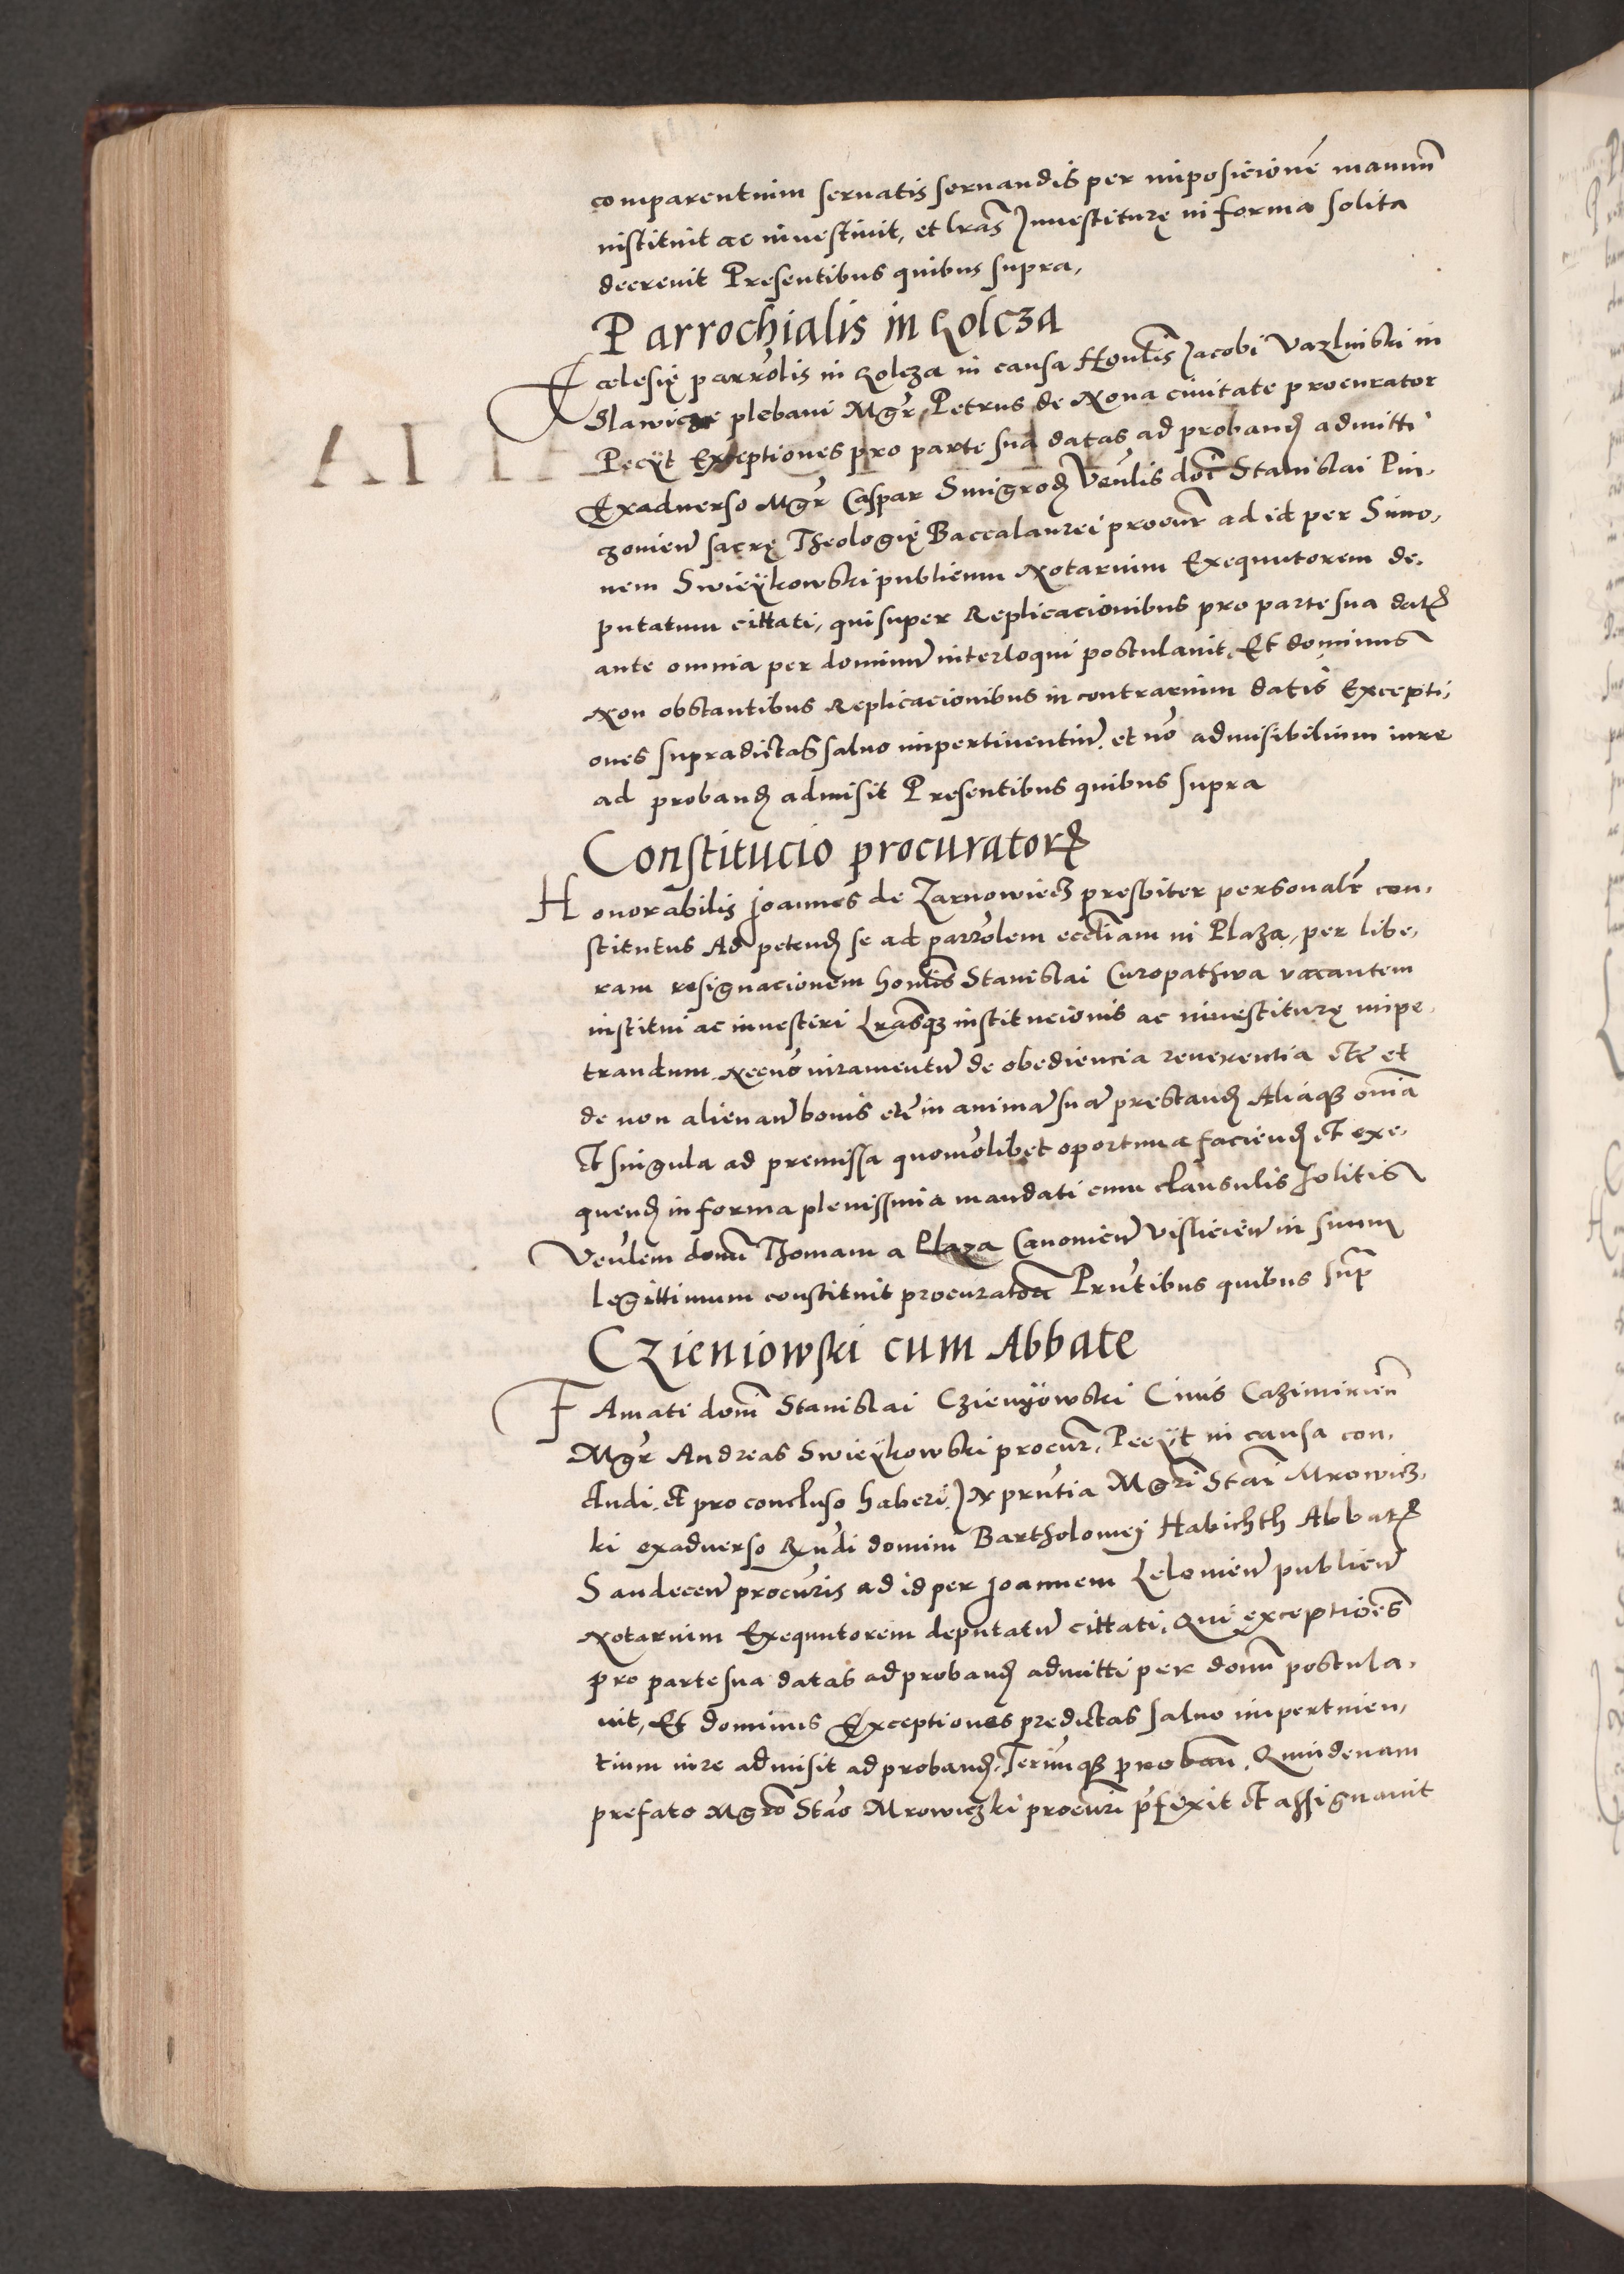 comparentium seruatis seruandis per imposicionē manuū
instituit ac inuestiuit, et lr̃as Jnuestiturę in forma solita
decreuit Presentibus quibus supra,
Parrochialis in Kolcza
Ecclesię parrolis in Kolcza in causa Honlis Jacobi Vazlinski in
Slawicze plebani Mgr̃ Petrus de Noua ciuitate procurator
Pecÿt Exceptiones pro parte sua datas ad proband admitti
Exaduerso Mgr̃ Caspar Smigrod Venlis doī Stanislai Pin,
czouien̄ sacrę Theologię Baccalaurei procur̃ ad id per Simo,
nem Swieÿkowski publicum Notarium Exequutorem de,
putatum cittati, qui super Replicacionibus pro parte sua dat
ante omnia per dominū interloqui postulauit, Et dominus
Non obstantibus Replicacionibus in contrarium datis Excepti,
ones supradictas saluo impertinentiū et nō admisibilium iure
ad proband admisit Presentibus quibus supra
Constitucio procurator
Honorabilis Joannes de Zarnowiecz presbiter personalr̃ con,
stitutus Ad petend se ad parrolem eccliam in Plaza, per libe,
ram resignacionem honlis Stanislai Curopathwa vacantem
institui ac inuestiri Lr̃asq institucionis ac inuestiturę impe,
trandum Necnō iuramentū de obediencia reuerentia etc̄ et
de non alienan̄ bonis etc̄ in animā suā prestand Aliaq om̄ia
Et singula ad premissa quomōlibet oportuna faciend et exe,
quend in forma plenissima mandati cum clausulis solitis
Venlem domī Thomam a Plaza Canonicū Vislicien̄ in suum
legittimum constituit procuratorē Prn̄tibus quibus sup̄
Czieniowski cum Abbate
FAmati domī Stanislai Czienÿowski Ciuis Cazimirien̄
Mgr̃ Andreas Swieÿkowski procur̃, Pecÿt in causa con,
cludi et pro concluso haberi, Jn prn̄tia Mgr̃i Stāi Mrowicz,
ki exaduerso Rn̄di domini Bartholomej Habichth Abbat
Sandecen̄ procuris ad id per Joannem Lelouien̄ publicū
Notarium Exequutorem deputatū cittati, Qui exceptiōes
pro parte sua datas ad proband admitti per domī postula,
uit, Et dominus Exceptiones predictas saluo impertinen,
tium iure admisit ad proband, Terīnūq proban̄ Quindenam
prefato Mgrō Stāo Mrowiczki procurī pr̄fixit et assignauit